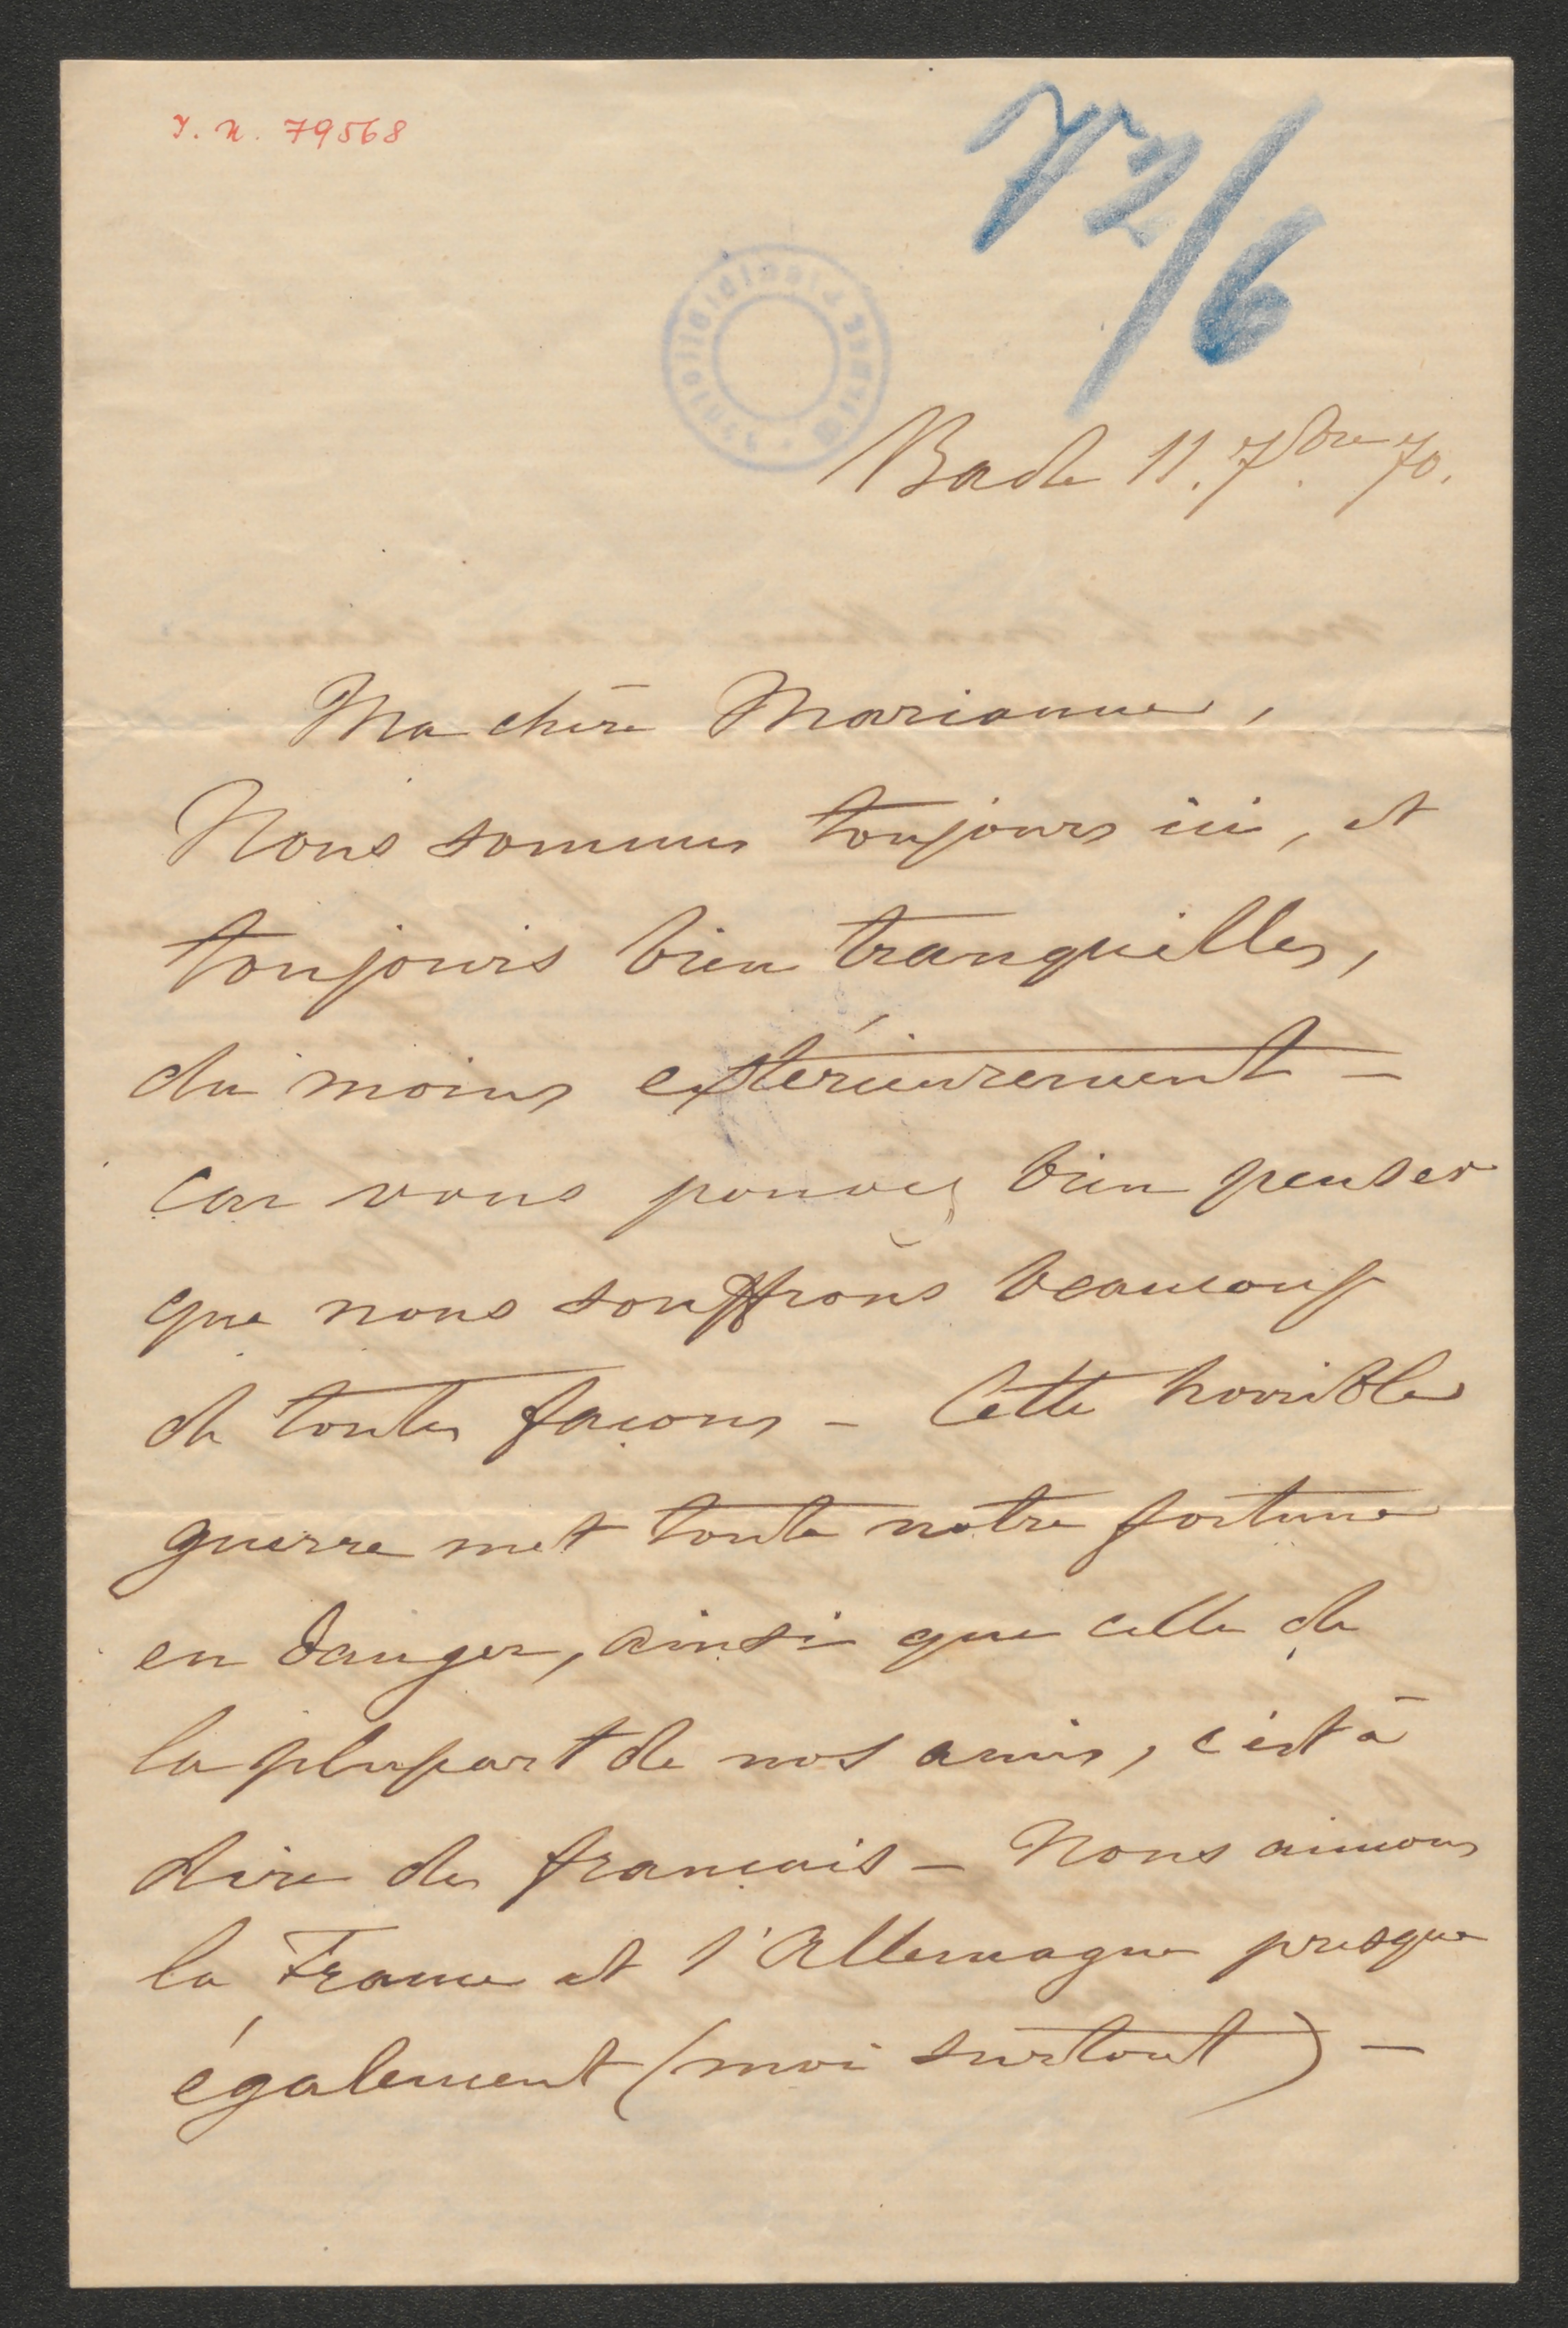 I. N. 79568
72/6
Bade 11. 7bre 70.
Ma chère Marianne,
Nous sommes toujours ici, et
toujours bien tranquilles,
du moins extérieurement –
car vous pouvez bien penser
que nous souffrons beaucoup
de toutes façons – Cette horrible
guerre met toute notre fortune
en danger, ainsi que celle de
la plupart de nos amis, c'est à
dire des français – Nous aimons
la France et l'Allemagne presque
également (moi surtout) –